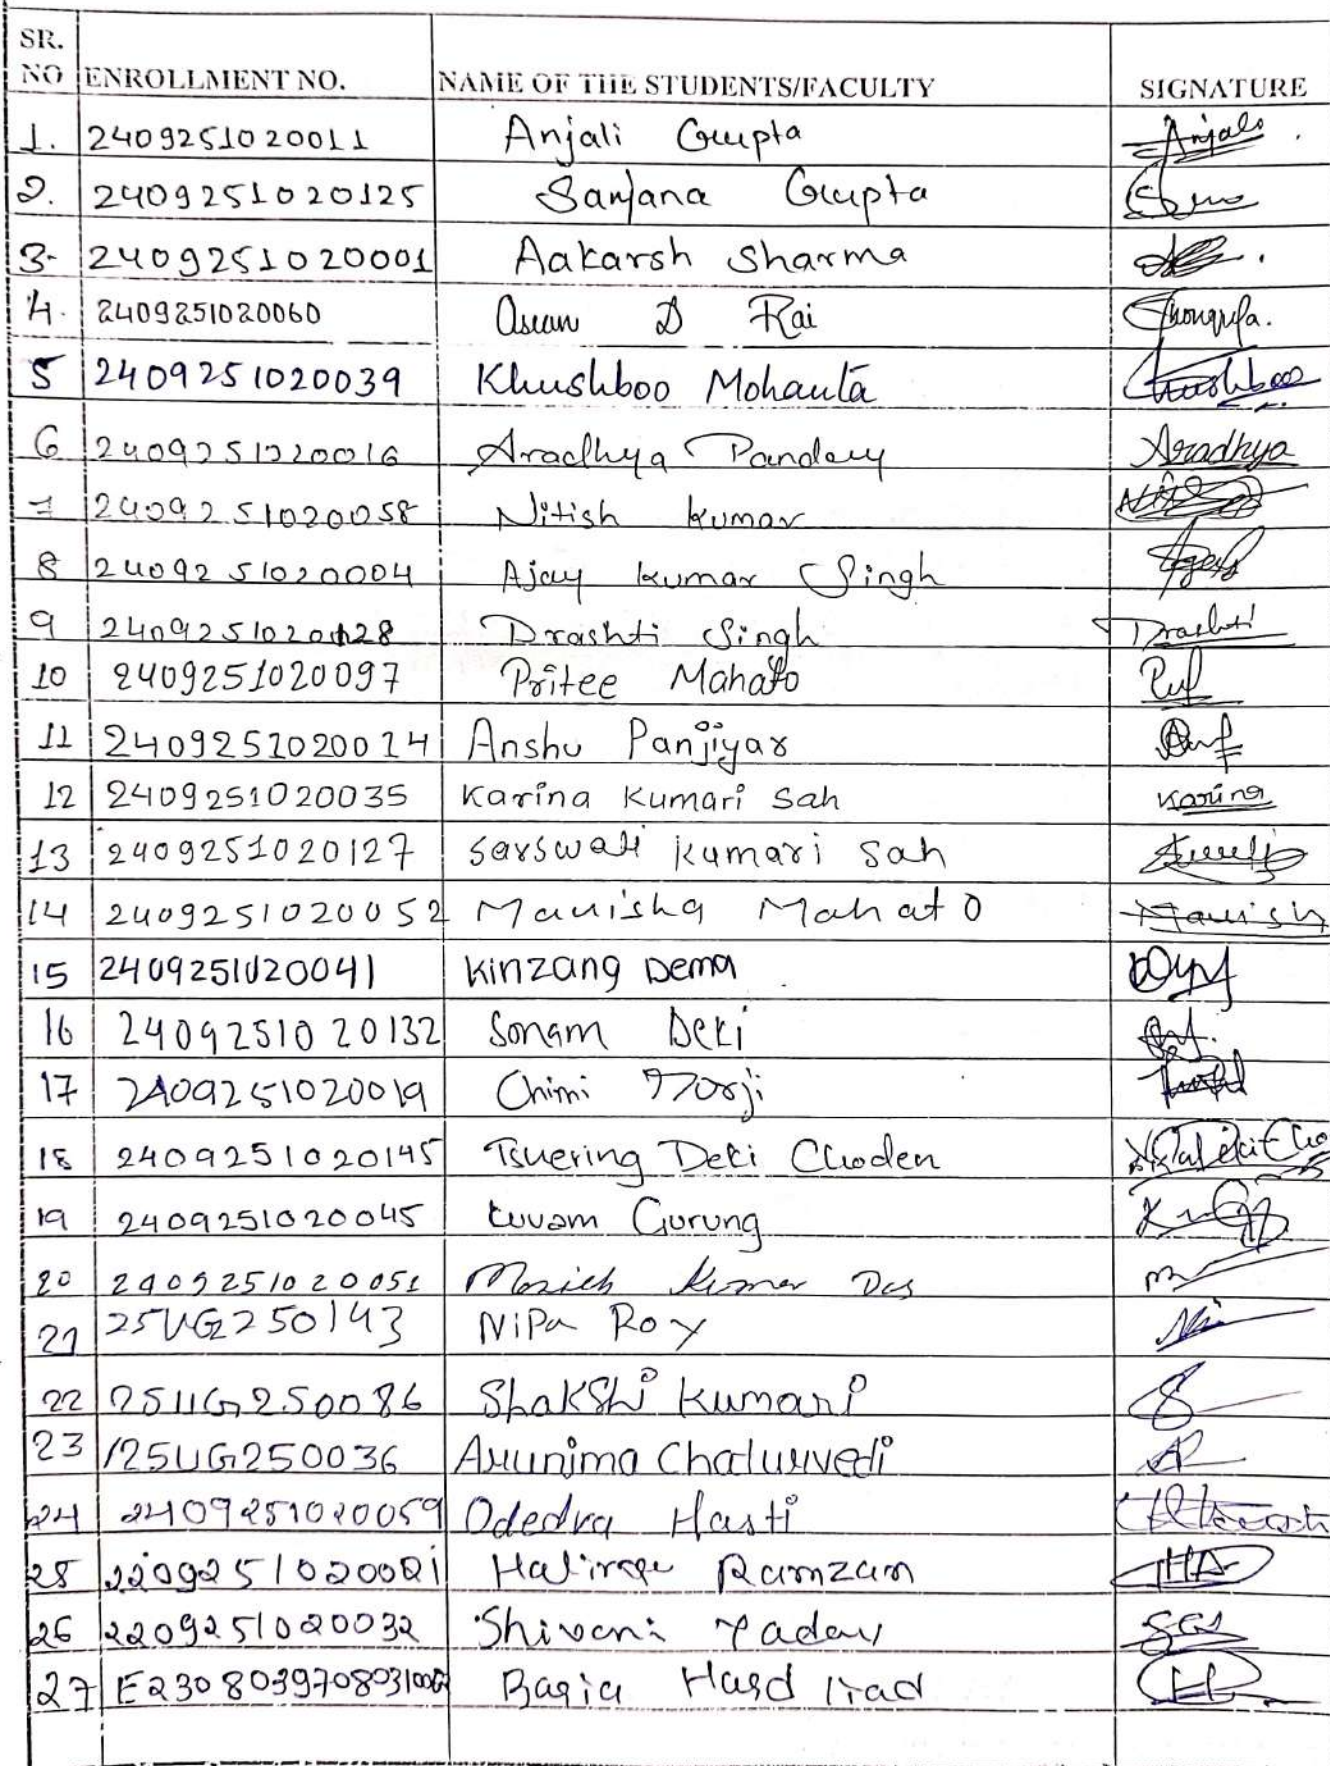 SR. NO ENROLLMENT NO. NAME OF THE STUDENTS/FACULTY SIGNATURE
1. 2409251020011 Anjali Gupta Anjali
2. 2409251020125 Sanjana Gupta
3. 2409251020001 Aakarsh Sharma
4. 2409251020060 D Rai
5 2409251020039 Khushboo Mohanta Khushboo
6 2409251020016 Aradhya Pandey Aradhya
7 2409251020058 Nitish kumar
8 2409251020004 Ajay kumar Singh
9 2409251020128 Drashti Singh Drashti
10 2409251020097 Pritee Mahato
11 2409251020014 Anshu Panjiyar
12 2409251020035 Karina Kumari Sah Karina
13 2409251020127 Sarswati Kumari Sah
14 2409251020052 Manisha Mahato
15 2409251020041 Kinzang Dema
16 2409251020132 Sonam Deki
17 2409251020019 Chimi Dorji
18 2409251020145 Tshering Deki Choden
19 2409251020045 Gurung
20 2409251020051 Kumar Das
21 25UG250143 NiPa Roy
22 25UG250086 Shakshi Kumari
23 25UG250036 Arunima Chaturvedi
24 2409251020059 Odedra Hasti
25 2209251020021 Ramzam
26 2209251020032 Shivani Yadav
27